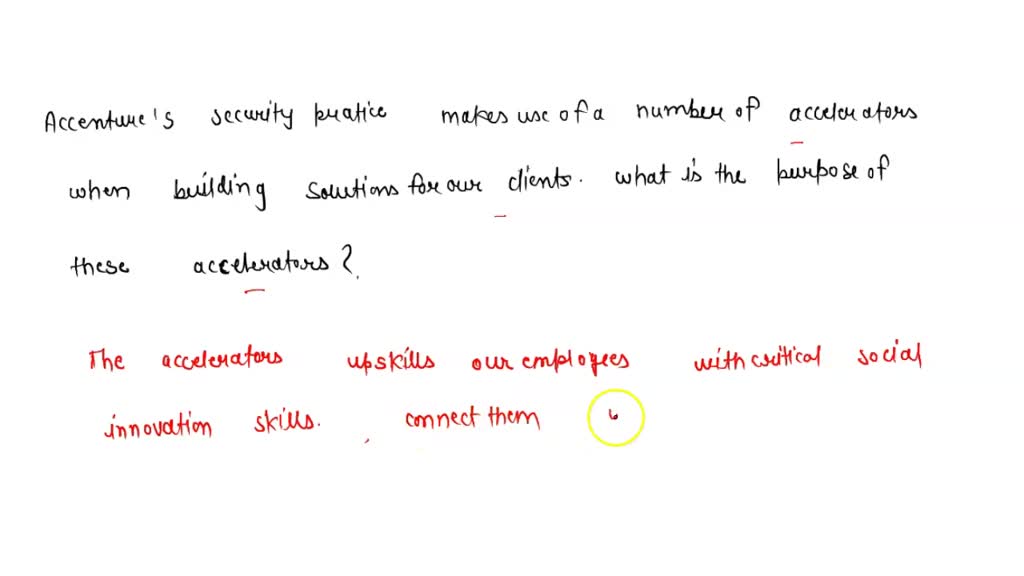 Accenture's security pratice makes use of a number of accelerators
when building solutions for our clients. what is the purpose of
these accelerators?
The accelerators upskills our employees with critical social
innovation skills. , connect them